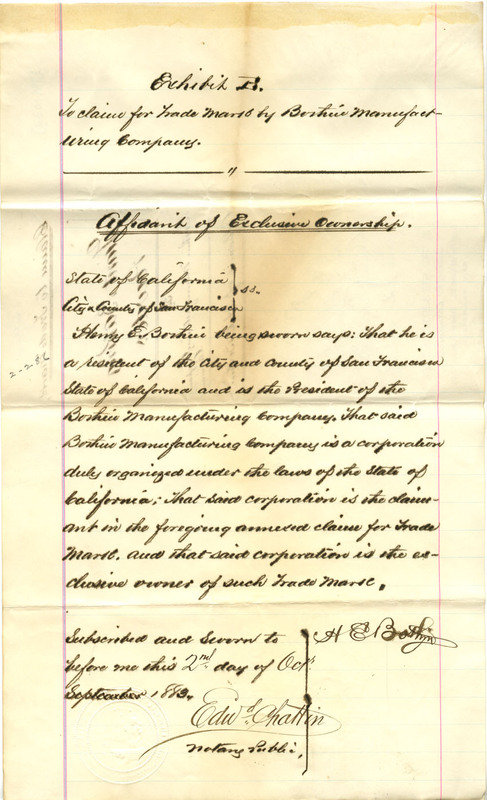 Exhibit B.
To claim for Trade Mark by Bothin Manufact-
uring Company.
"
Affidavit of Exclusive Ownership.
State of California
City & County of San Francisco } ss.
Henry E. Bothin being sworn says: That he is
a resident of the City and County of San Francisco
State of California and is the President of the
Bothin Manufacturing Company. That said
Bothin Manufacturing Company is a corporation
duly organized under the laws of the State of
California; That said corporation is the claim-
ant in the foregoing annexed claim for Trade
Mark. and that said corporation is the ex-
clusive owner of such Trade Mark.
Subscribed and Sworn to
before me this 2nd day of Oct.
September 1883.
H E Bothin
Edwd. Chattin
Notary Public.